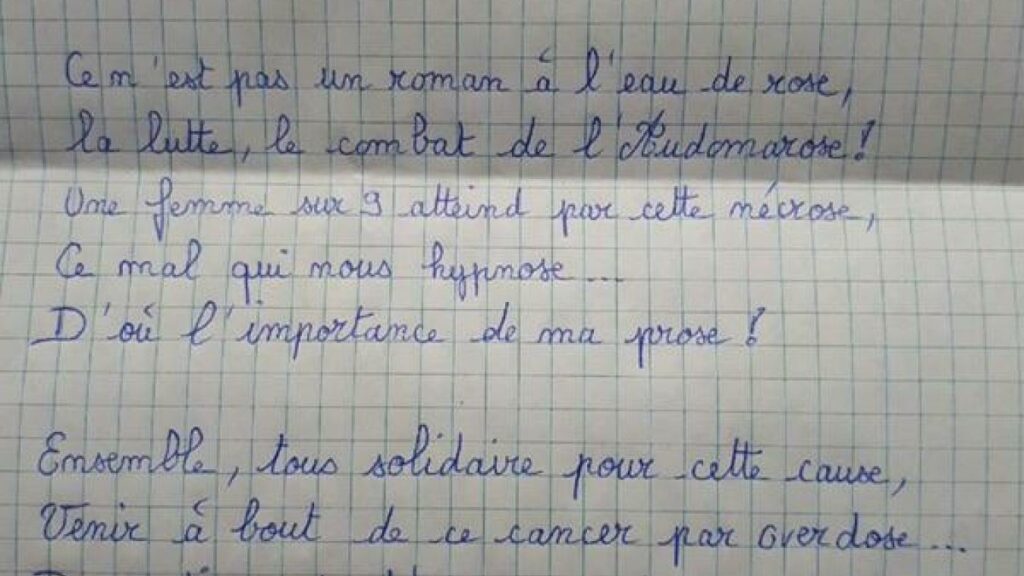 Ce n'est pas un roman à l'eau de rose,
la lutte, le combat de l'Audomarose !
Une femme sur 9 atteind par cette nécrose,
Ce mal qui nous hypnose...
D'où l'importance de ma prose !
Ensemble, tous solidaire pour cette cause,
Venir à bout de ce cancer par overdose...